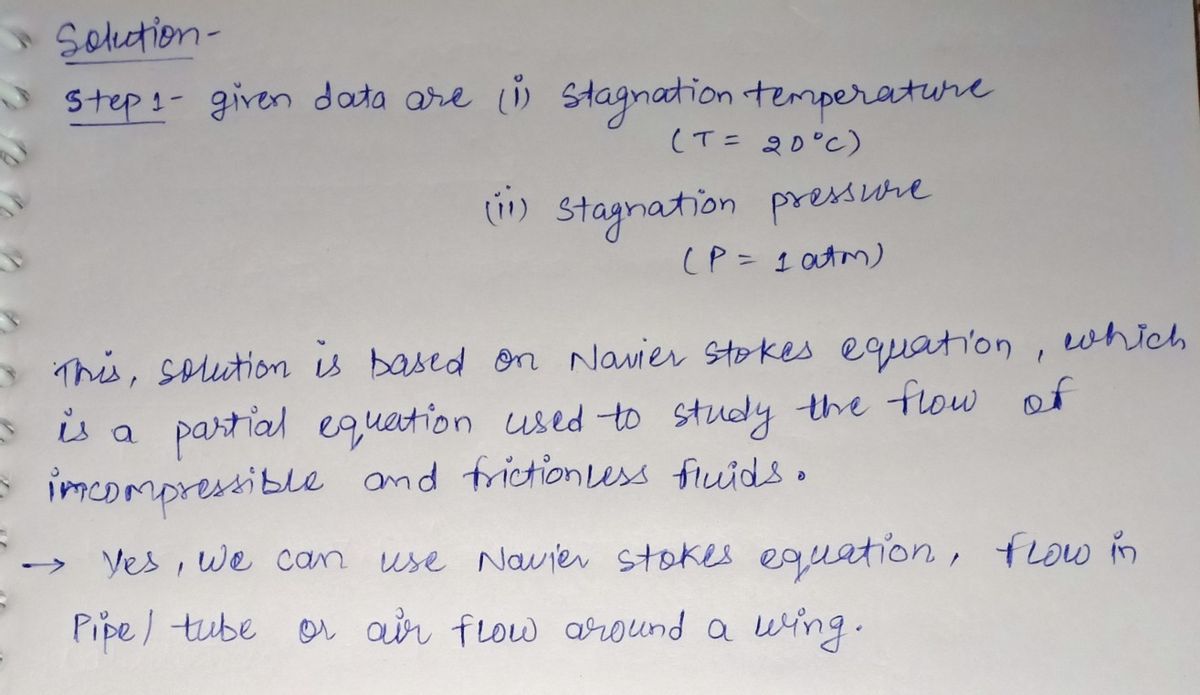 Solution-
Step 1- given data are (i) Stagnation temperature
(T = 20°C)
(ii) Stagnation pressure
(P = 1 atm)
This, solution is based on Navier Stokes equation, which
is a partial equation used to study the flow of
imcompressible and frictionless fluids.
→ Yes, We can use Navier stokes equation, flow in
Pipe/ tube or air flow around a wing.